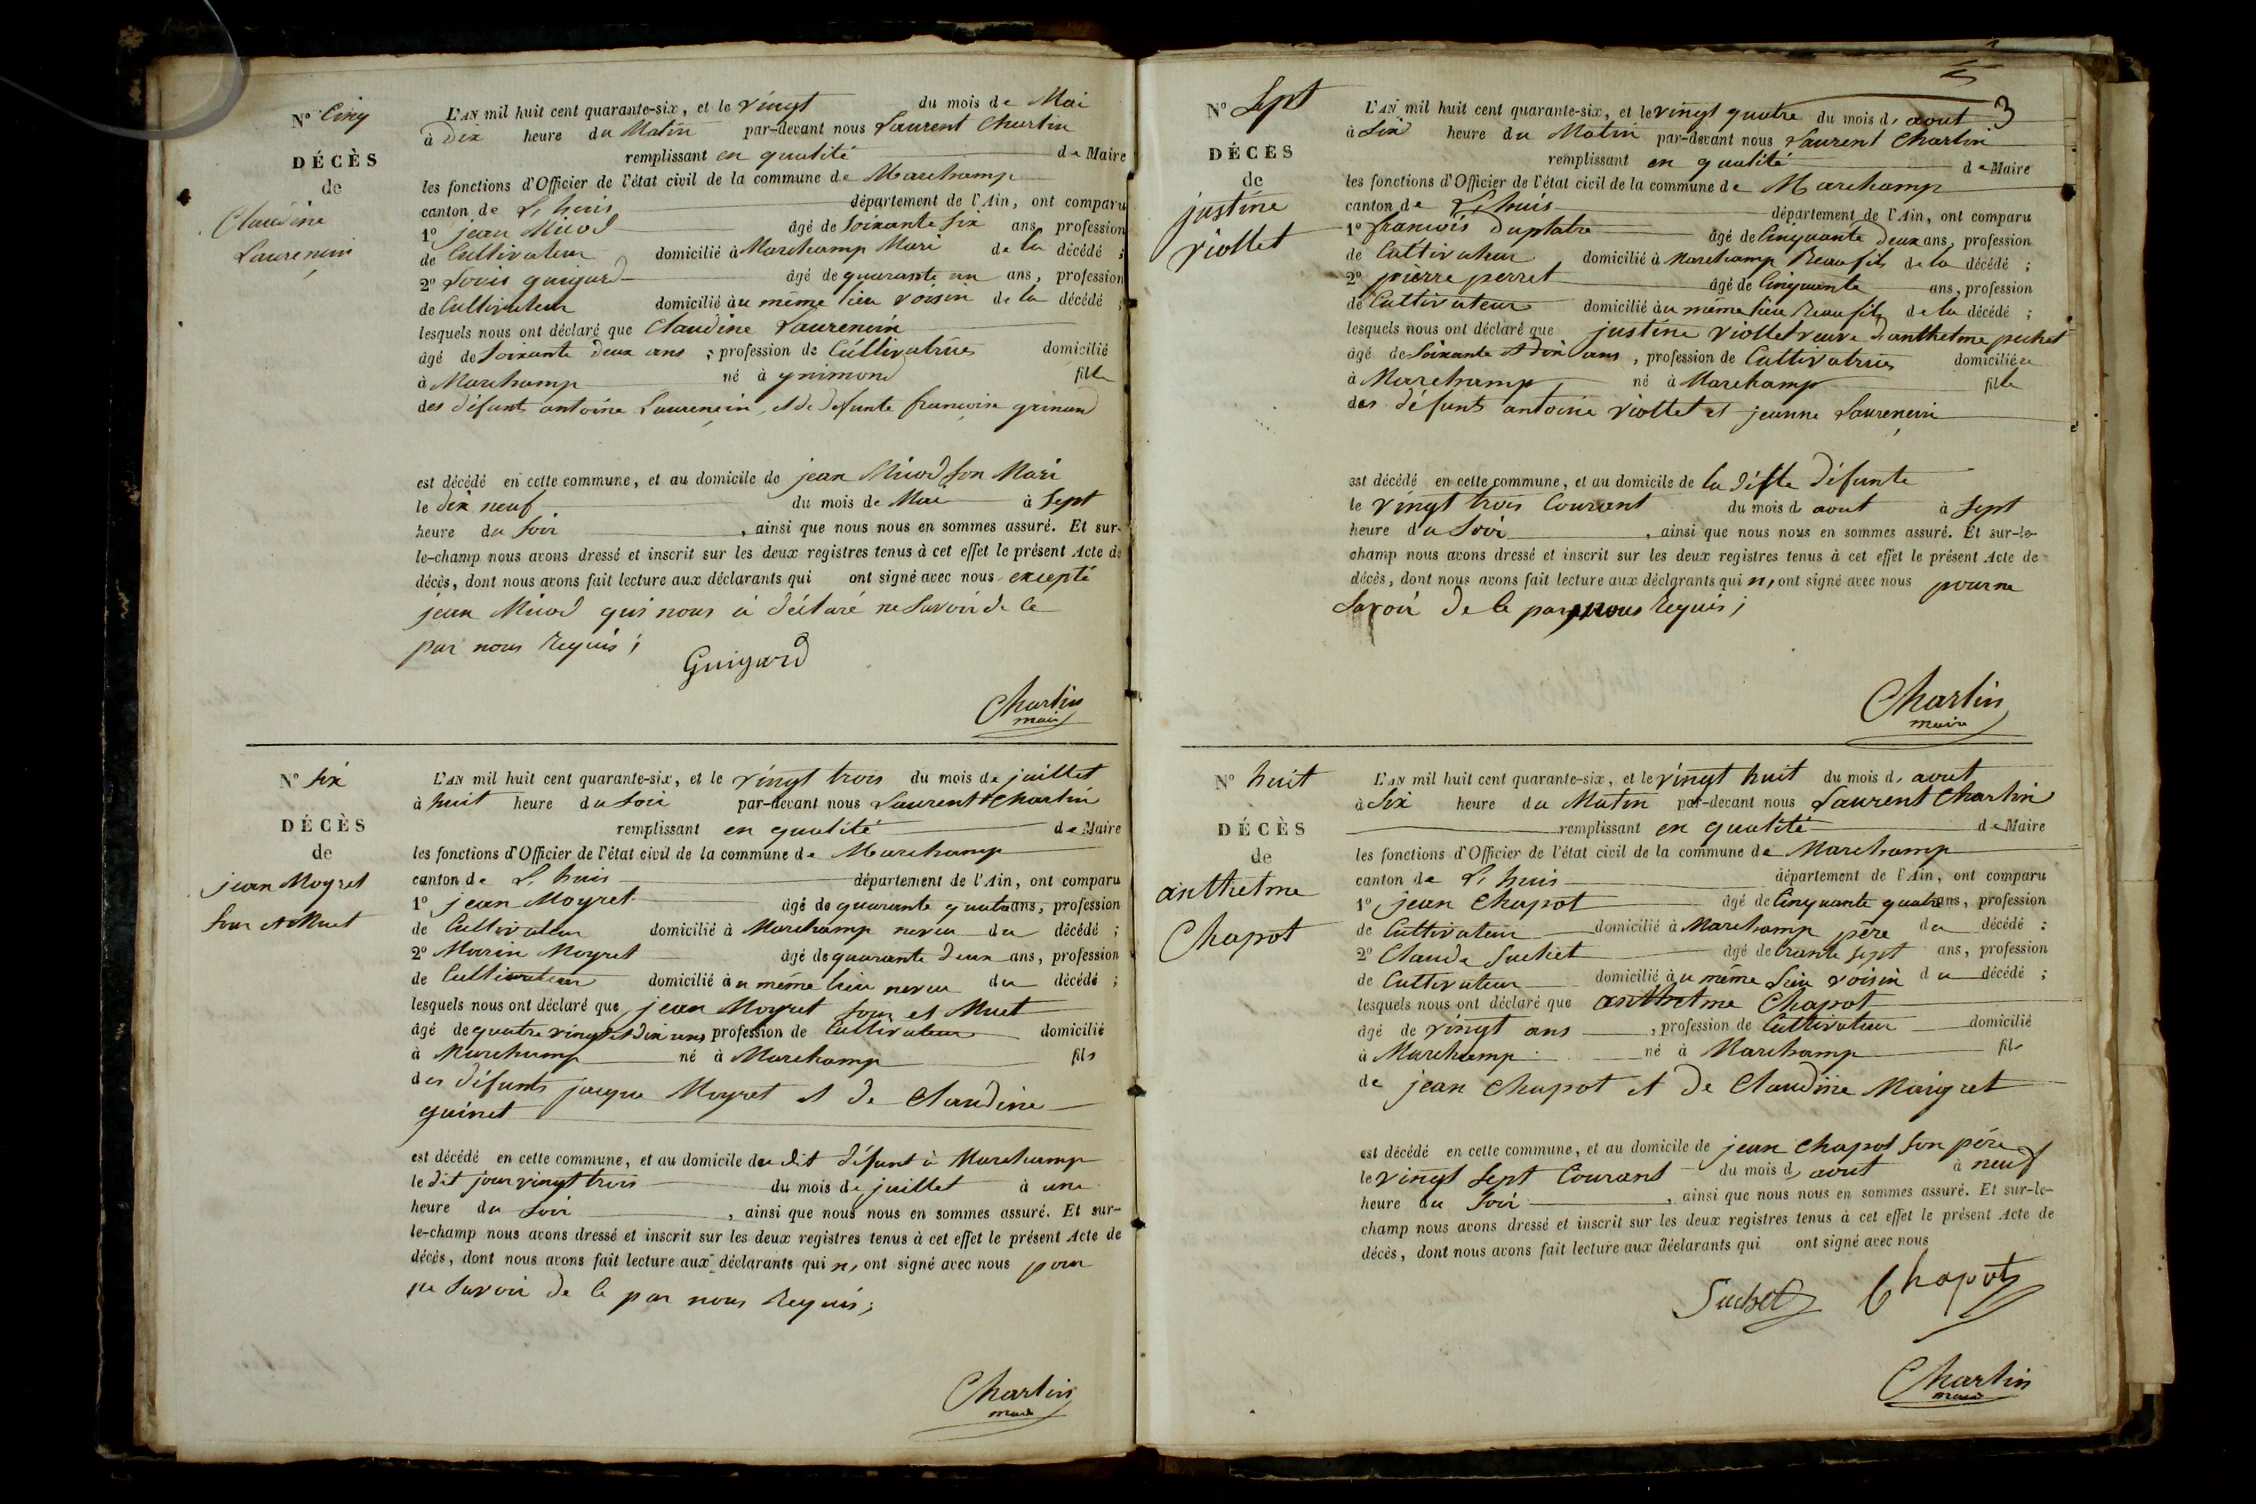 N° Cinq
DÉCÈS
de
Claudine
Laurencin
L'AN mil huit cent quarante-six, et le vingt du mois de Mai
à dix heure du Matin par-devant nous Laurent Charlin
remplissant en qualité de Maire
les fonctions d'Officier de l'état civil de la commune de Marchamp
canton de L, huis département de l'Ain, ont comparu
1° jean Micod âgé de Soixante Six ans, profession
de Cultivateur domicilié à Marchamp Mari de la décédé ;
2° Louis guigard âgé de quarante un ans, profession
de Cultivateur domicilié àu même lieu voisin de la décédé ;
lesquels nous ont déclaré que Claudine Laurencin
âgé de Soixante deux ans ; profession de Cultivatrice domicilié
à Marchamp né à ynimond fille
des défunts antoine Laurençin, et de defunte françoise grinand
est décédé en cette commune, et au domicile de jean Micod Son Mari
le dix neuf du mois de Mai à Sept
heure du Soir , ainsi que nous nous en sommes assuré. Et sur-
le-champ nous avons dressé et inscrit sur les deux registres tenus à cet effet le présent Acte de
décès, dont nous avons fait lecture aux déclarants qui ont signé avec nous excepté
jean Micod qui nous à déclaré ne Savoir de Ce
par nous Requis ;
Guigard
Charlin
maire
N° Six
DÉCÈS
de
jean Moyret
Sour et Muet
L'AN mil huit cent quarante-six, et le vingt trois du mois de juillet
à huit heure du Soir par-devant nous Laurent Charlin
remplissant en qualité de Maire
les fonctions d'Officier de l'état civil de la commune de Marchamp
canton de L, huis département de l'Ain, ont comparu
1° jean Moyret âgé de quarante quatre ans, profession
de Cultivateur domicilié à Marchamp neveu du décédé ;
2° Marin Moyret âgé de quarante deux ans, profession
de Cultivateur domicilié àu même lieu neveu du décédé ;
lesquels nous ont déclaré que jean Moyret Sour et Muet
âgé de quatre vingt et dix ans profession de Cultivateur domicilié
à Marchamp né à Marchamp fils
des défunts jacque Moyret et de Claudine
guinet
est décédé en cette commune, et au domicile du dit défunt à Marchamp
le dit jour vingt trois du mois de juillet à une
heure du Soir , ainsi que nous nous en sommes assuré. Et sur-
le-champ nous avons dressé et inscrit sur les deux registres tenus à cet effet le présent Acte de
décès, dont nous avons fait lecture aux déclarants qui n, ont signé avec nous pour
ne Savoir de Ce par nous Requis ;
Charlin
maire
3
N° Sept
DÉCÈS
de
justine
viollet
L'AN mil huit cent quarante-six, et le vingt quatre du mois d, aout
à Six heure du Matin par-devant nous Laurent Charlin
remplissant en qualité de Maire
les fonctions d'Officier de l'état civil de la commune de Marchamp
canton de L, huis département de l'Ain, ont comparu
1° francois Duplatre âgé de Cinquante deux ans, profession
de Cultivateur domicilié à Marchamp Beaufils de la décédé ;
2° pierre perret âgé de Cinquante ans, profession
de Cultivateur domicilié àu même lieu Beaufils de la décédé ;
lesquels nous ont déclaré que justine viollet veuve d'anthelme pochet
âgé de Soixante et dix ans, profession de Cultivatrice domiciliée
à Marchamp né à Marchamp fille
des défunts antoine viollet et jeanne Laurencin
est décédé en cette commune, et au domicile de la ditte défunte
le vingt trois Courant du mois d, aout à Sept
heure du Soir , ainsi que nous nous en sommes assuré. Et sur-le-
champ nous avons dressé et inscrit sur les deux registres tenus à cet effet le présent Acte de
décès, dont nous avons fait lecture aux déclarants qui n, ont signé avec nous pour ne
Savoir de Ce par nous Requis ;
Charlin
maire
N° huit
DÉCÈS
de
anthelme
Chapot
L'AN mil huit cent quarante-six, et le vingt huit du mois d, aout
à Six heure du Matin par-devant nous Laurent Charlin
remplissant en qualité de Maire
les fonctions d'Officier de l'état civil de la commune de Marchamp
canton de L, huis département de l'Ain, ont comparu
1° jean Chapot âgé de Cinquante quatre ans, profession
de Cultivateur domicilié à Marchamp père du décédé ;
2° Claude Suchet âgé de trante sept ans, profession
de Cultivateur domicilié àu même Lieu voisin du décédé ;
lesquels nous ont déclaré que anthelme Chapot
âgé de vingt ans , profession de Cultivateur domicilié
à Marchamp né à Marchamp fils
de jean Chapot et de Claudine Maigret
est décédé en cette commune, et au domicile de jean Chapot Son père
le vingt Sept Courant du mois d, aout à neuf
heure du Soir , ainsi que nous nous en sommes assuré. Et sur-le-
champ nous avons dressé et inscrit sur les deux registres tenus à cet effet le présent Acte de
décès, dont nous avons fait lecture aux déclarants qui ont signé avec nous
Suchet Chapot
Charlin
maire